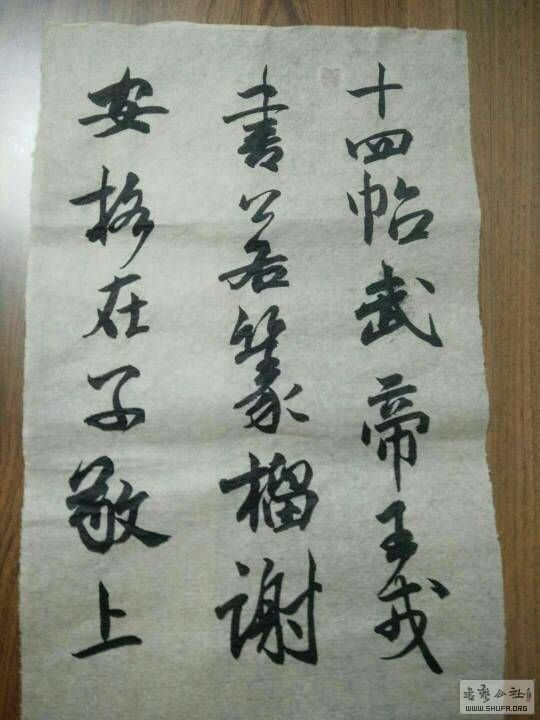 十四帖武帝王戎
書若篆籀謝
安格在子敬上
书艺公社
WWW.SHUFA.ORG